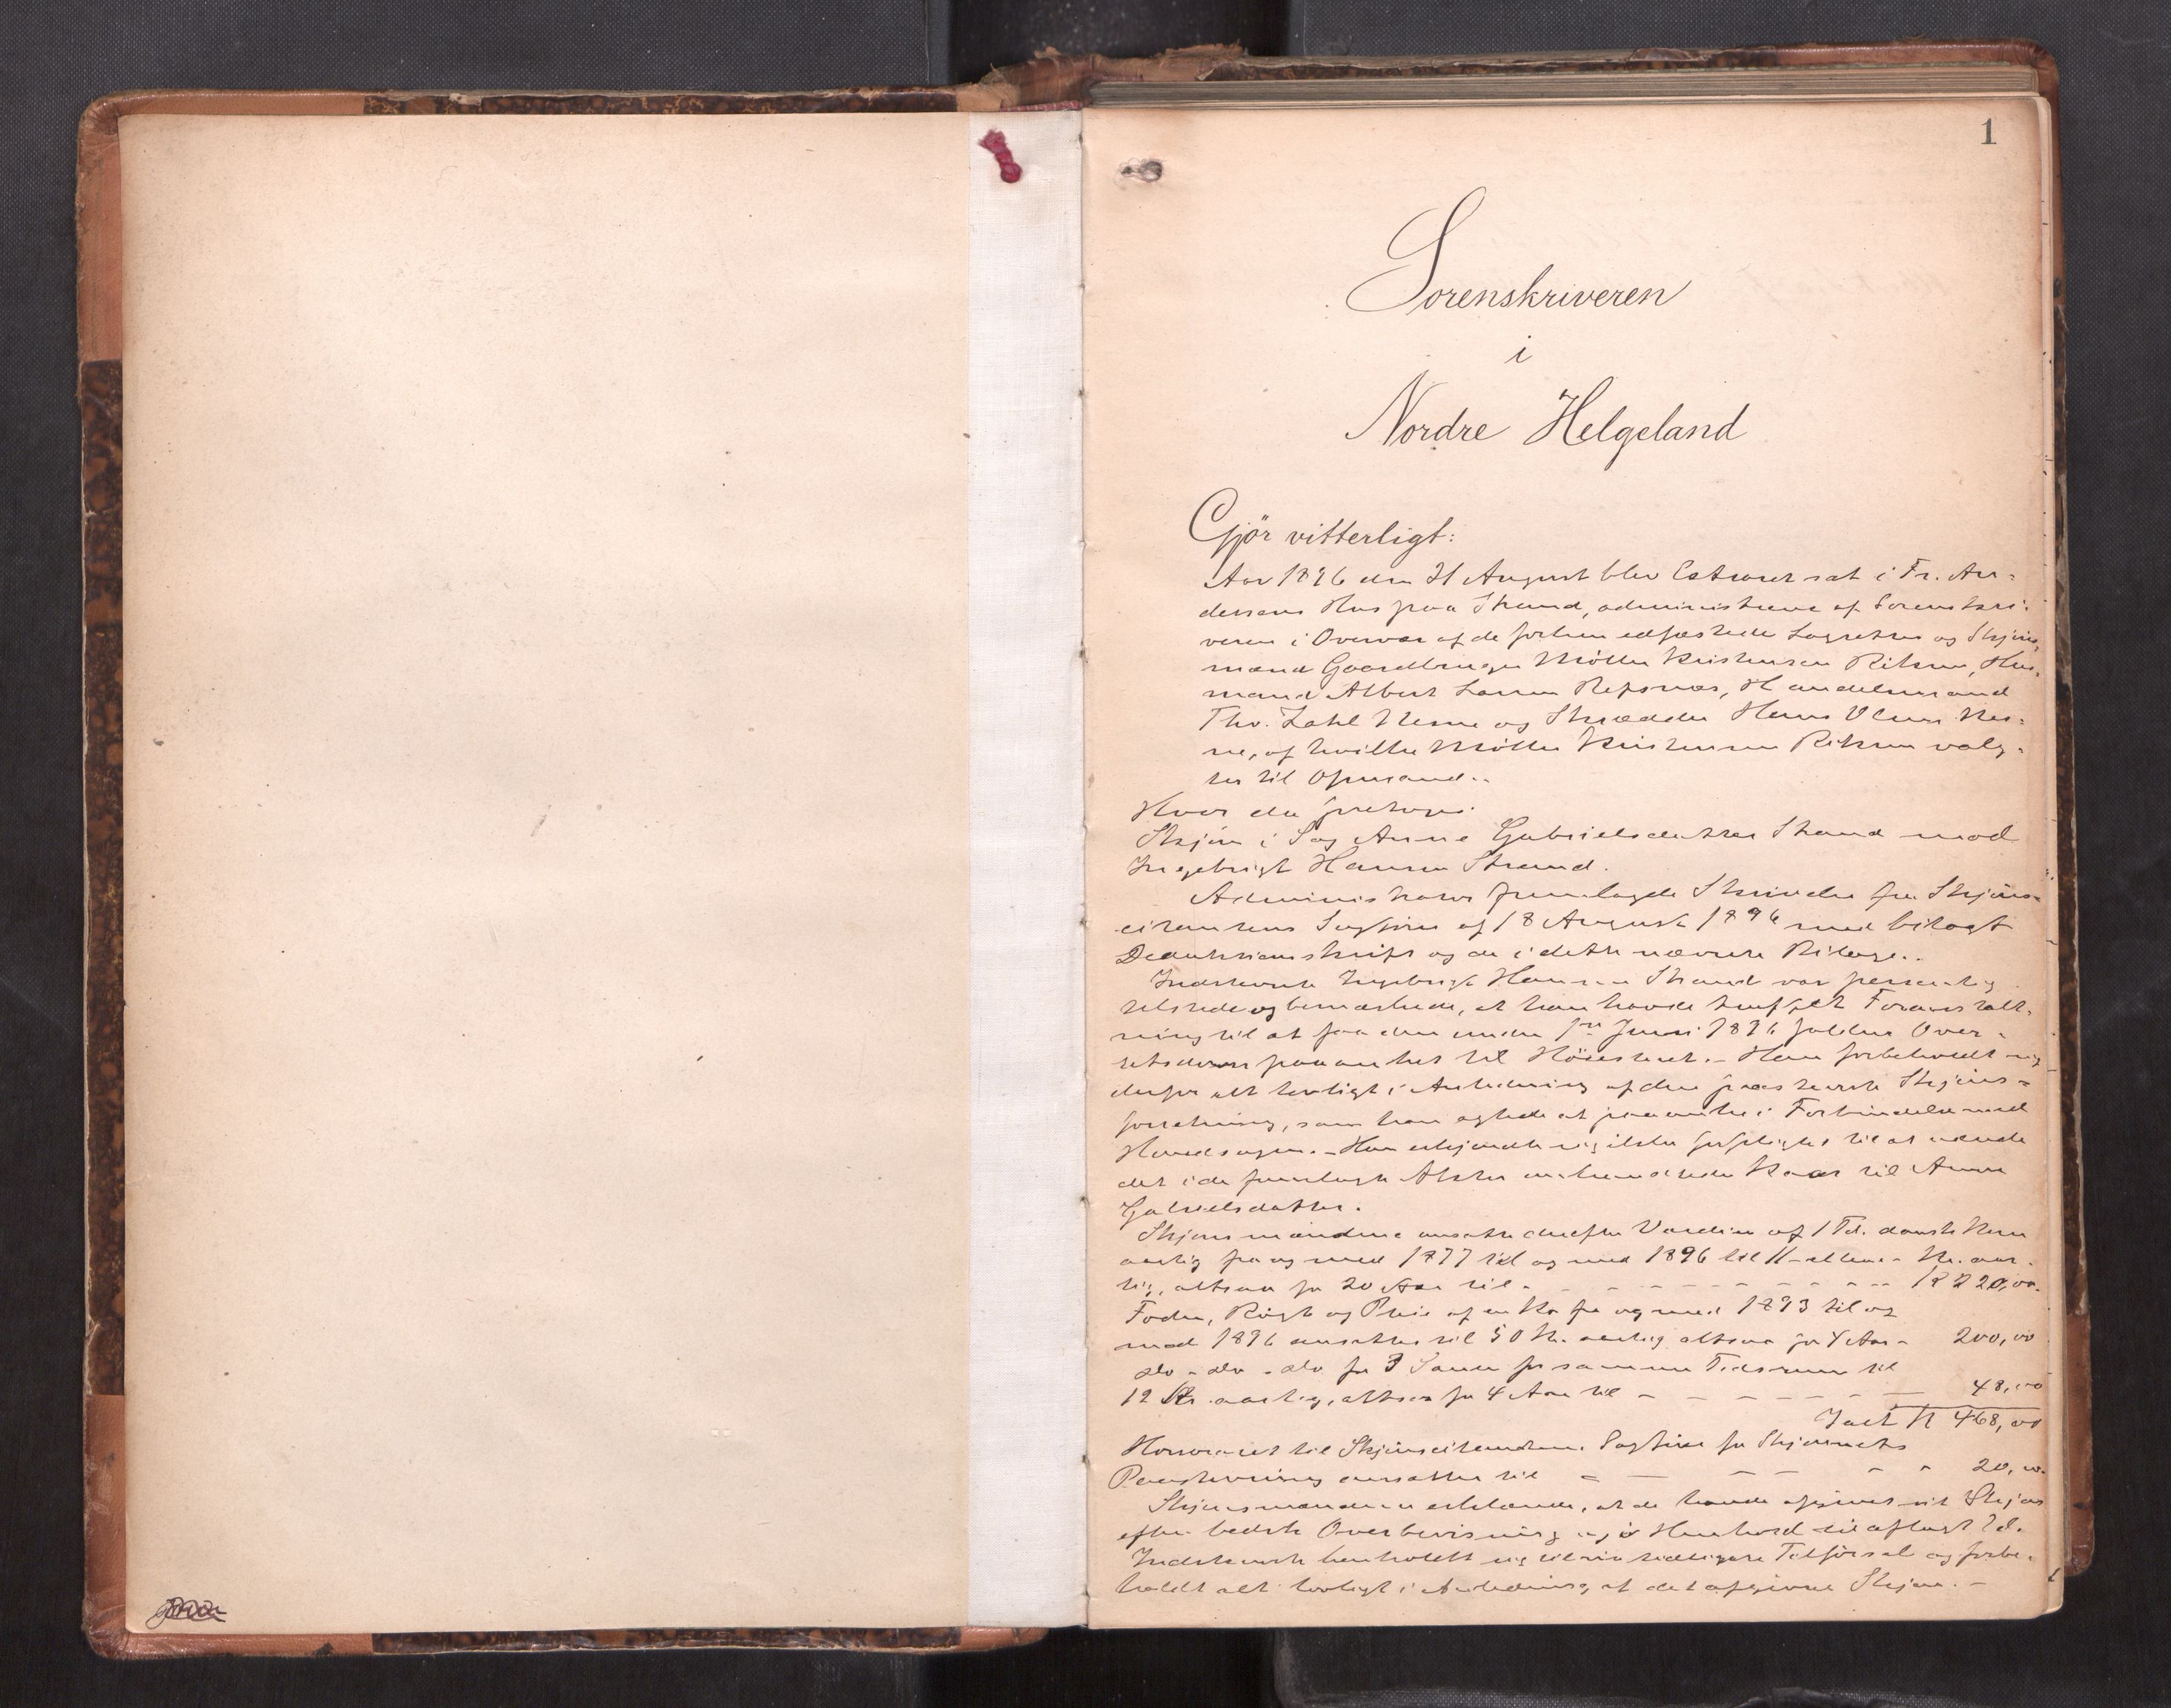 1
Sorenskriveren
i
Nordre Helgeland
Gjör vitterligt:
Aar 1896 den 31 August blev Extraret sat i Fr. An-
dersens Hus paa Strand, administreret af Sorenskri-
veren i Overvær af de forhen edfæstede Lagrettes og Skjöns-
mænd Gaardbruger Möller Kristensen Hus-
mand Albert Larsen Refsnæs, Handelsmand
Thv. Zahl Nesne og Skrædder Hans Olsen Nes-
ne, af hvilke Möller Kristensen valg-
tes til Opmand.
Hvor da foretoges:
Skjön i Sag Anne Gabrielsdatter Strand mod
Ingebrigt Hansen Strand.
Administrator fremlagde Skrivelse fra Skjöns-
citantens Sagförer af 18 August 1896 med bilagt
Deduktionsskrift og de i dette nævnte Bilage.
Indstevnte Ingebrigt Hansen Strand var personlig
tilstede og bemærkede, at han havde truffet Foranstalt-
ning til at faa den under 1ste Juni 1896 faldne Over-
retsdom paaanket til Höiesteret. - Han forbeholdt sig
derfor alt lovligt i Anledning af den paastevnte Skjöns-
forretning, som han agtede at paaanke i Forbindelse med
Hovedsagen. - Han erkjendte sig ikke forpligtet til at udrede
det i de fremlagte Akter omhandlede Kaar til Anne
Gabrielsdatter.
Skjönsmændene ansatte derefter Værdien af 1 Td. dansk Korn
aarlig fra og med 1877 til og med 1896 til 11 - elleve - Kr. aar-
lig, altsaa for 20 Aar til - - - - Kr 220,00.
Foder, Rögt og Pleie af en Ko fra og med 1893 til og
med 1896 ansattes til 50 Kr. aarlig altsaa for 4 Aar - 200,00
do - do - do for 3 Sauer for samme Tidsrum til
12 Kr. aarlig, altsaa for 4 Aar til - - - - 48,00
Ialt Kr 468,00
Honoraret til Skjönscitantens Sagförer for Skjönnets
Paastevning ansattes til - - - - 20,00.
Skjönsmændene erklærede, at de havde afgivet sit Skjön
efter bedste Overbevisning og i Henhold til aflagt Ed.
Indstevnte henholdt sig til sin tidligere Tilförsel og forbe-
holdt alt lovligt i Anledning af det afgivne Skjön. -